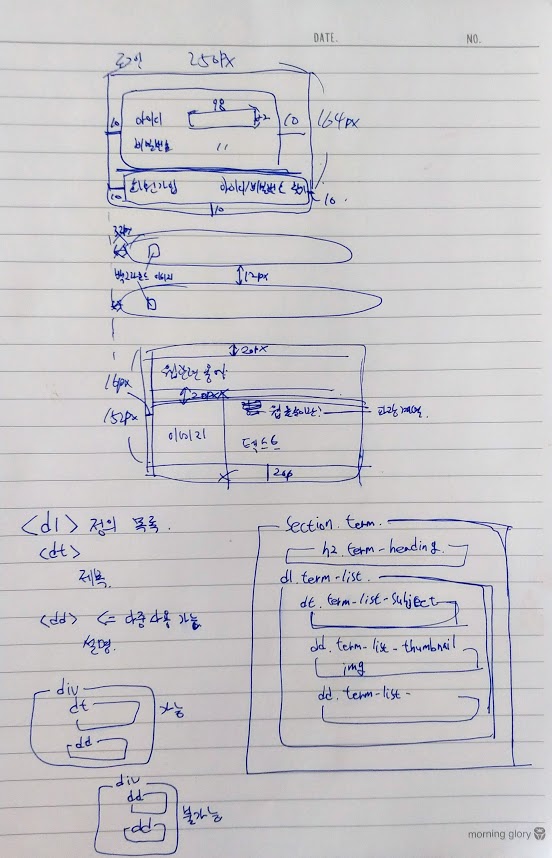 DATE.
NO.
로그인 250px
98
10 아이디 10 164px
비밀번호 "
회원가입 아이디/비밀번호 찾기
10 10
10
백그라운드 이미지
12px
20px
웹관련 용어
16px
20px
152px
이미지
텍스트
20p
<dl> 정의 목록.
<dt>
제목.
<dd> <= 다중사용 가능
설명.
div
dt
dd
가능
div
dd
dd
불가능
Section.term.
h2.term-heading.
dl.term-list.
dt.term-list-subject
dd.term-list-thumbnail
img
dd.term-list-
morning glory